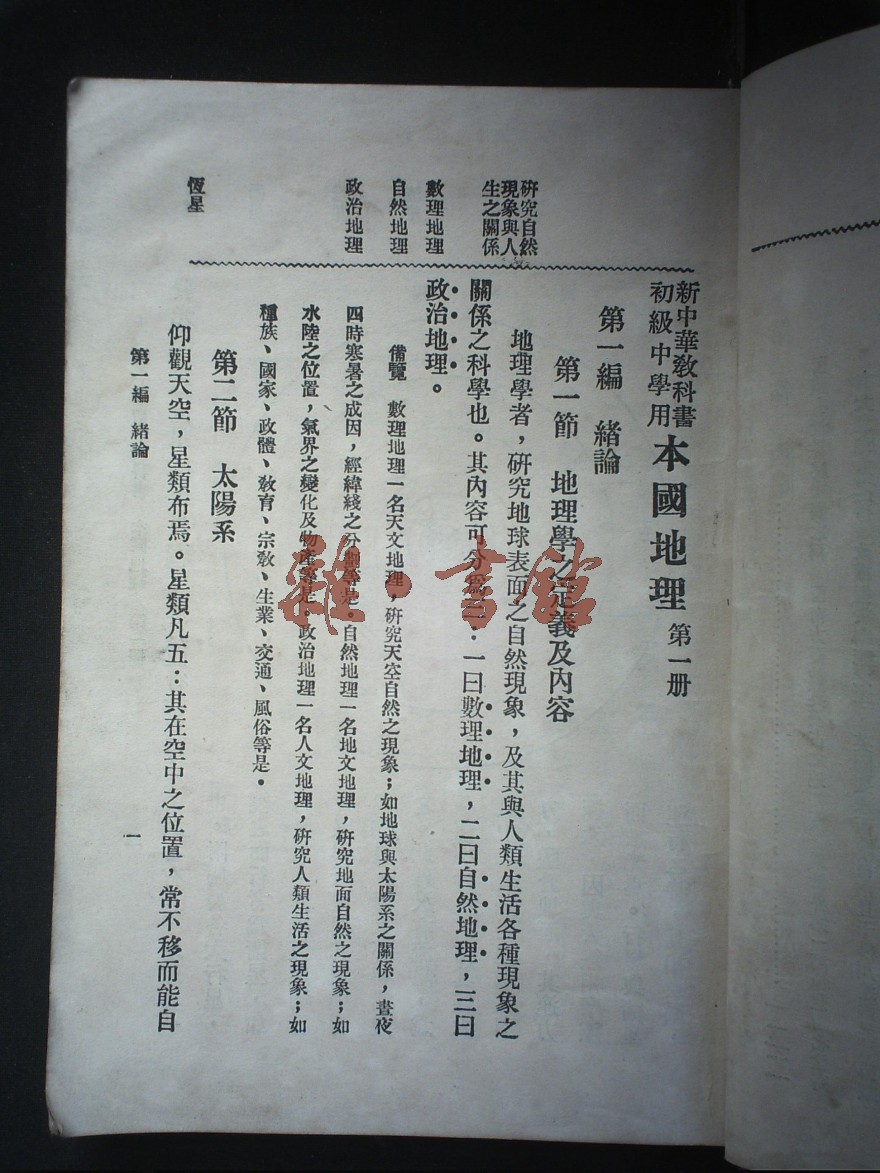 新中華教科書
初級中學用
本國地理 第一册
第一編 緒論
第一節 地理學之定義及內容
地理學者，研究地球表面之自然現象，及其與人類生活各種現象之
關係之科學也。其內容可分爲三：一曰數理地理，二曰自然地理，三曰
政治地理。
備覽 數理地理一名天文地理，研究天空自然之現象；如地球與太陽系之關係，晝夜
四時寒暑之成因，經緯綫之分劃等是。自然地理一名地文地理，研究地面自然之現象；如
水陸之位置，氣界之變化及物產等是。政治地理一名人文地理，研究人類生活之現象；如
種族、國家、政體、敎育、宗敎、生業、交通、風俗等是。
第二節 太陽系
仰觀天空，星類布焉。星類凡五：其在空中之位置，常不移而能自
研究自然
現象與人
生之關係
數理地理
自然地理
政治地理
恆星
第一編 緒論
一
雜·書館